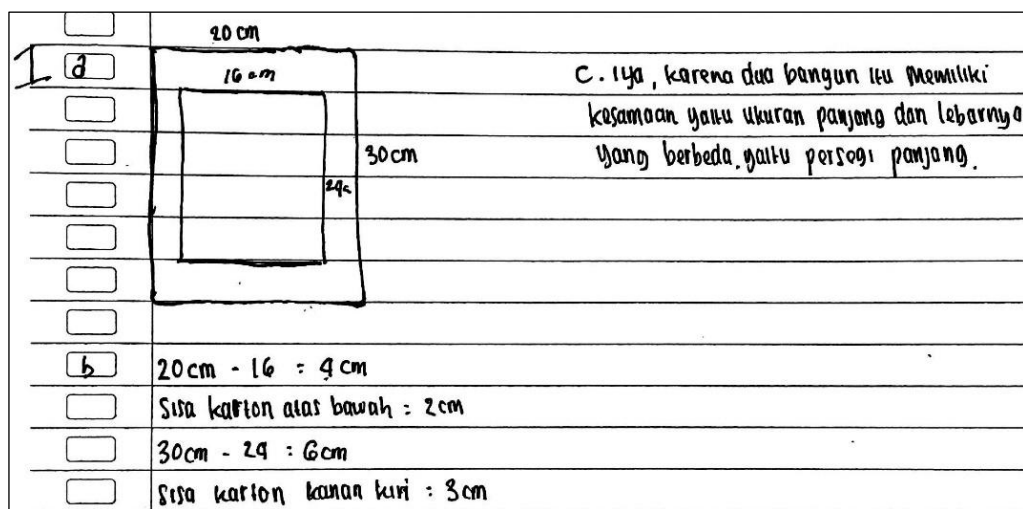 20 cm
1 a
16 cm
30 cm
24c
C. Iya, karena dua bangun itu memiliki
kesamaan yaitu ukuran panjang dan lebarnya
yang berbeda. yaitu persegi panjang.
b 20cm - 16 = 4 cm
Sisa karton atas bawah = 2cm
30cm - 24 = 6cm
Sisa karton kanan kiri = 3cm